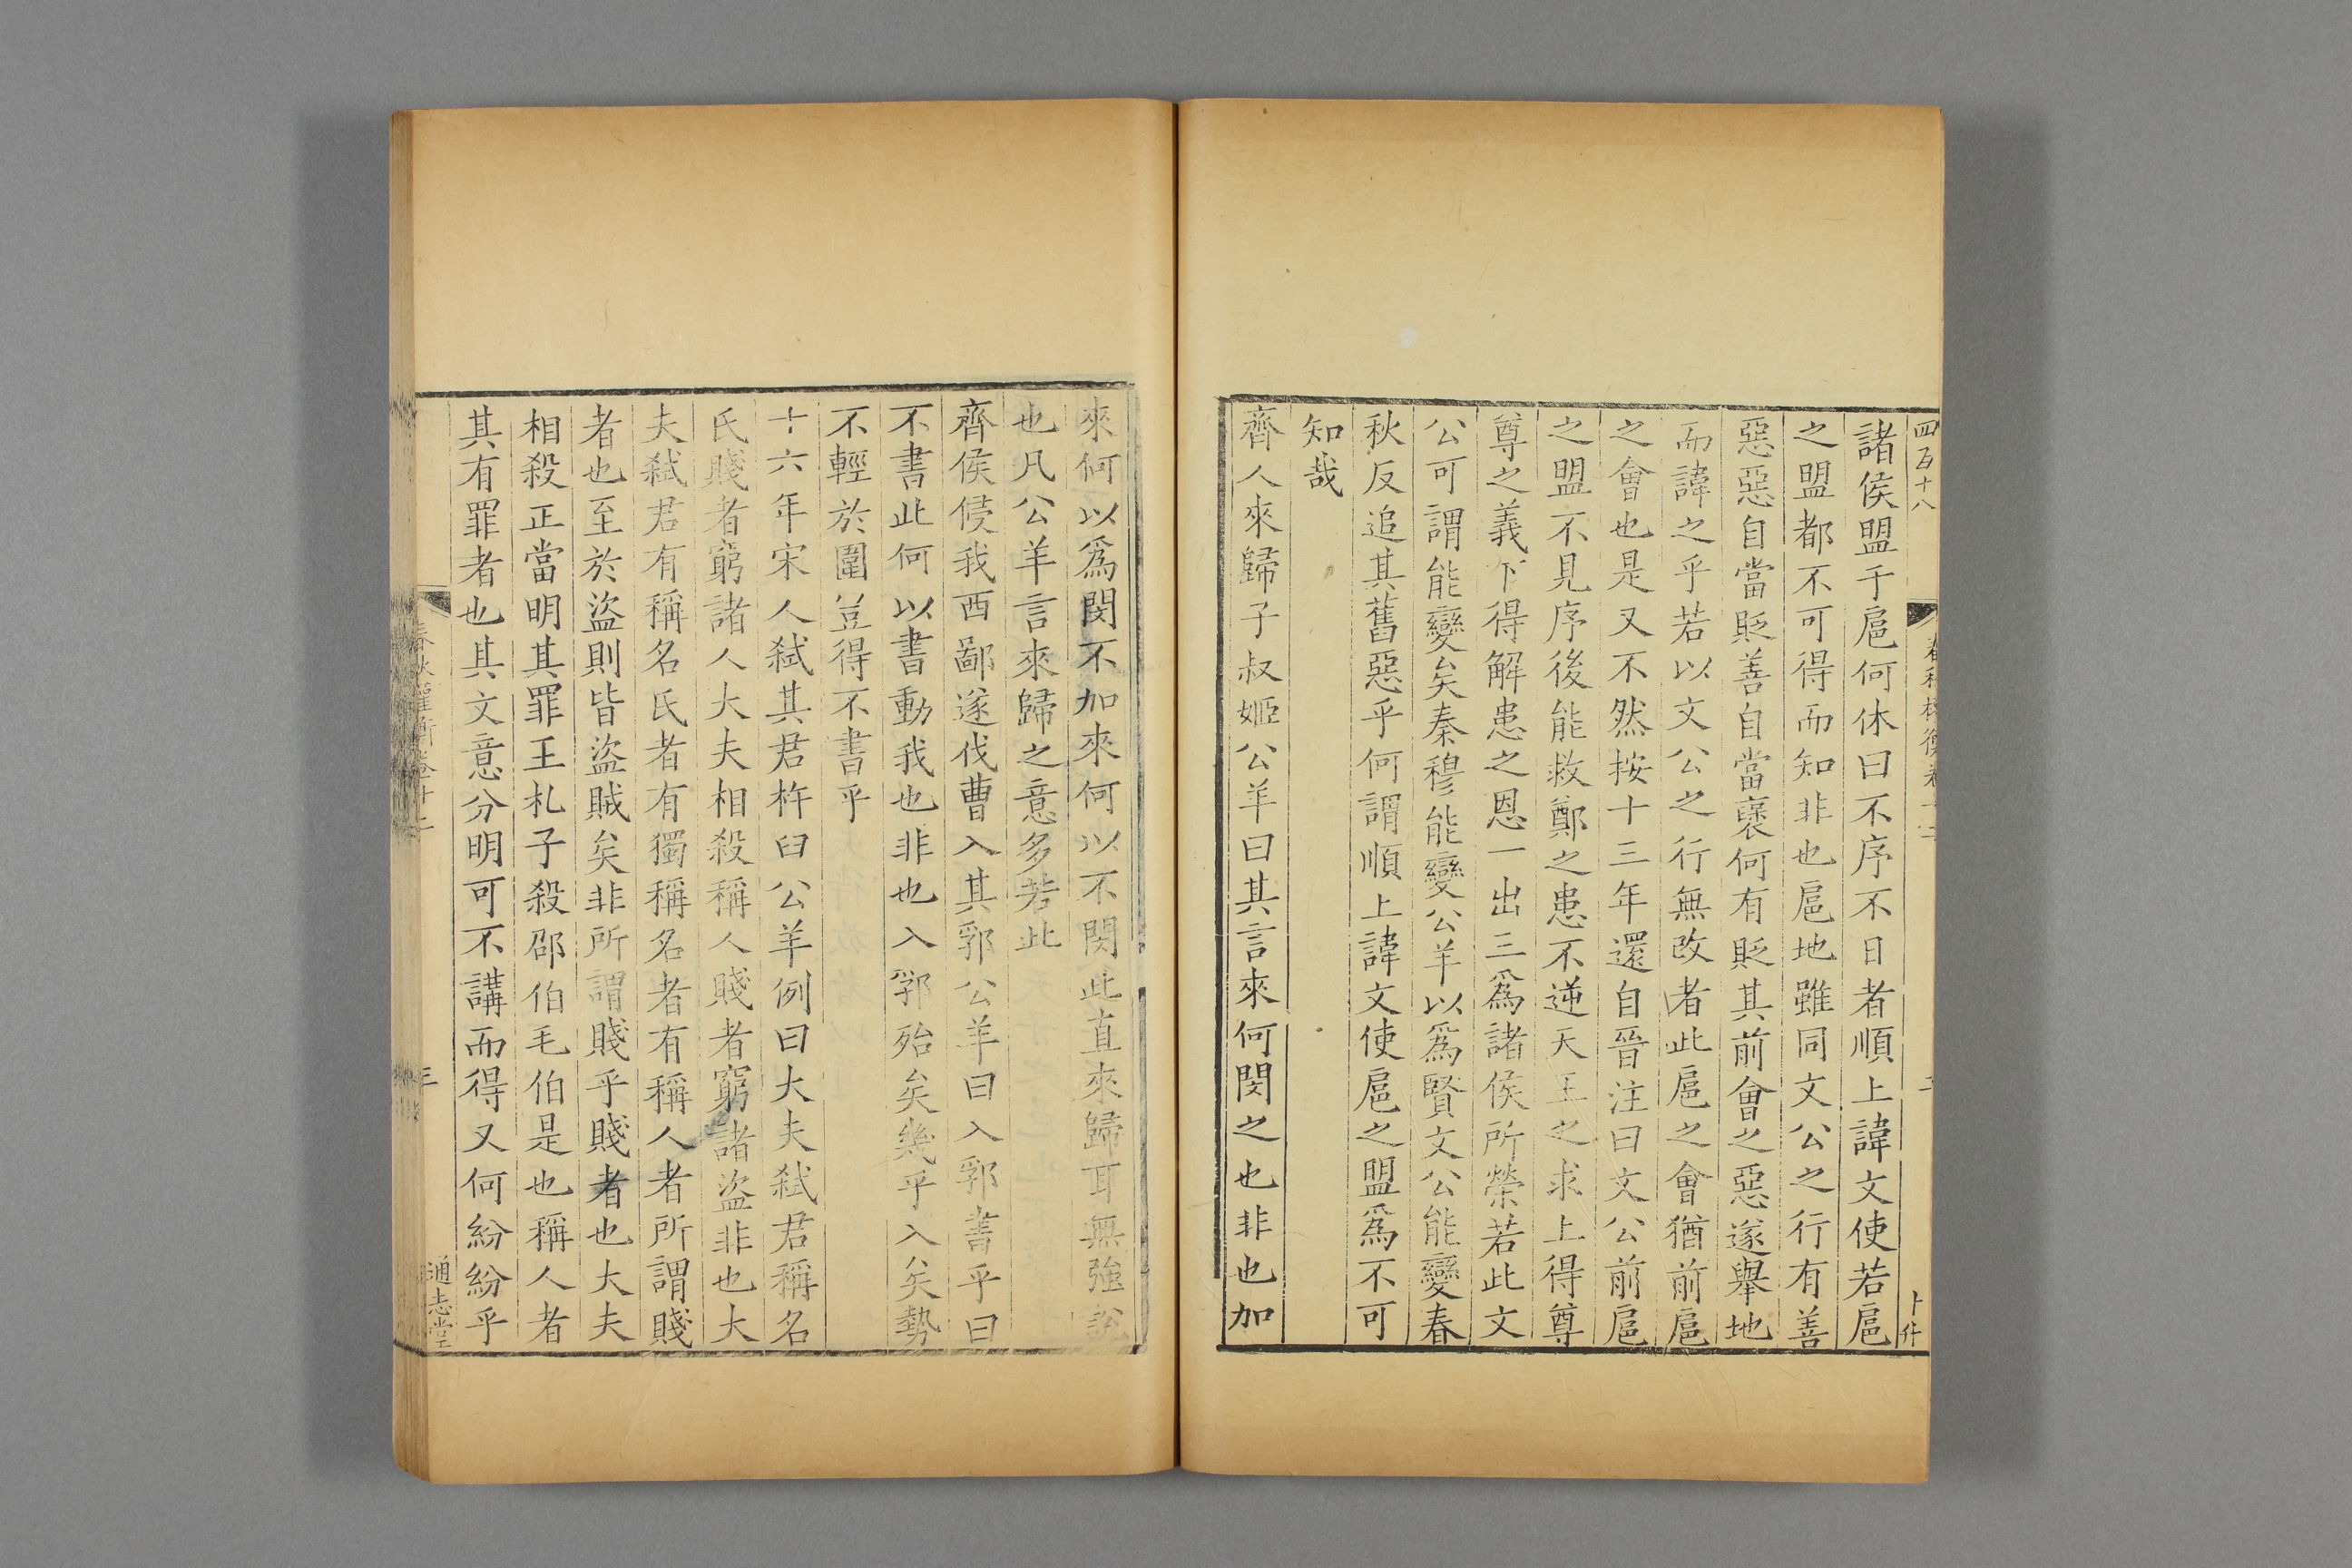 四百十八
春秋權衡卷十二
二
卜仵
諸侯盟于扈何休曰不序不日者順上諱文使若扈
之盟都不可得而知非也扈地雖同文公之行有善
惡惡自當貶善自當襃何有貶其前會之惡遂舉地
而諱之乎若以文公之行無改者此扈之會猶前扈
之會也是又不然按十三年還自晉注曰文公前扈
之盟不見序後能救鄭之患不逆天王之求上得尊
尊之義下得解患之恩一出三爲諸侯所榮若此文
公可謂能變矣秦穆能變公羊以爲賢文公能變春
秋反追其舊惡乎何謂順上諱文使扈之盟爲不可
知哉
齊人來歸子叔姬公羊曰其言來何閔之也非也加
來何以爲閔不加來何以不閔此直來歸耳無強說
也凡公羊言來歸之意多若此
齊侯侵我西鄙遂伐曹入其郛公羊曰入郛書乎曰
不書此何以書動我也非也入郛殆矣幾乎入矣勢
不輕於圍豈得不書乎
十六年宋人弑其君杵臼公羊例曰大夫弑君稱名
氏賤者窮諸人大夫相殺稱人賤者窮諸盜非也大
夫弑君有稱名氏者有獨稱名者有稱人者所謂賤
者也至於盜則皆盜賊矣非所謂賤乎賤者也大夫
相殺正當明其罪王札子殺邵伯毛伯是也稱人者
其有罪者也其文意分明可不講而得又何紛紛乎
春秋權衡卷十二
三
通志堂